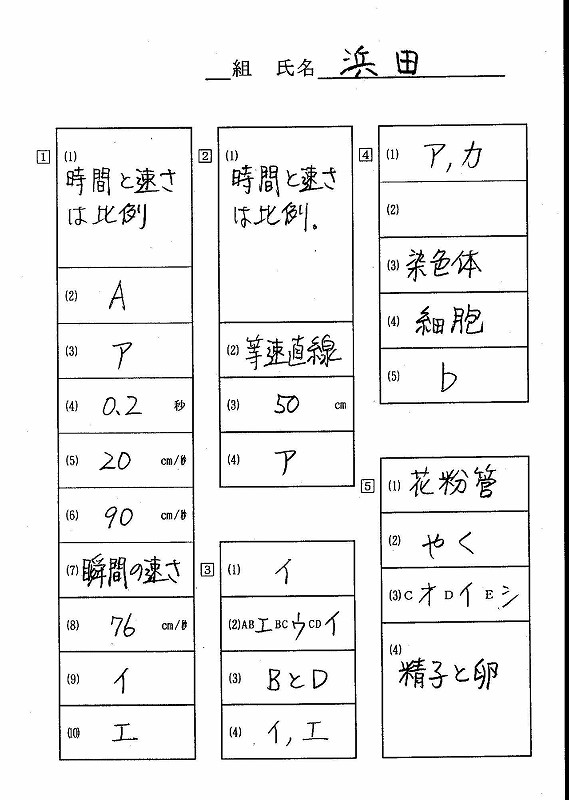 組 氏名 浜田
1
(1)
時間と速さ
は比例
(2) A
(3) ア
(4) 0.2 秒
(5) 20 cm/秒
(6) 90 cm/秒
(7) 瞬間の速さ
(8) 76 cm/秒
(9) イ
(10) エ
2
(1)
時間と速さ
は比例。
(2) 等速直線
(3) 50 cm
(4) ア
3
(1) イ
(2) AB エ BC ウ CD イ
(3) BとD
(4) イ, エ
4
(1) ア, カ
(2)
(3) 染色体
(4) 細胞
(5) b
5
(1) 花粉管
(2) やく
(3) C オ D イ E シ
(4)
精子と卵